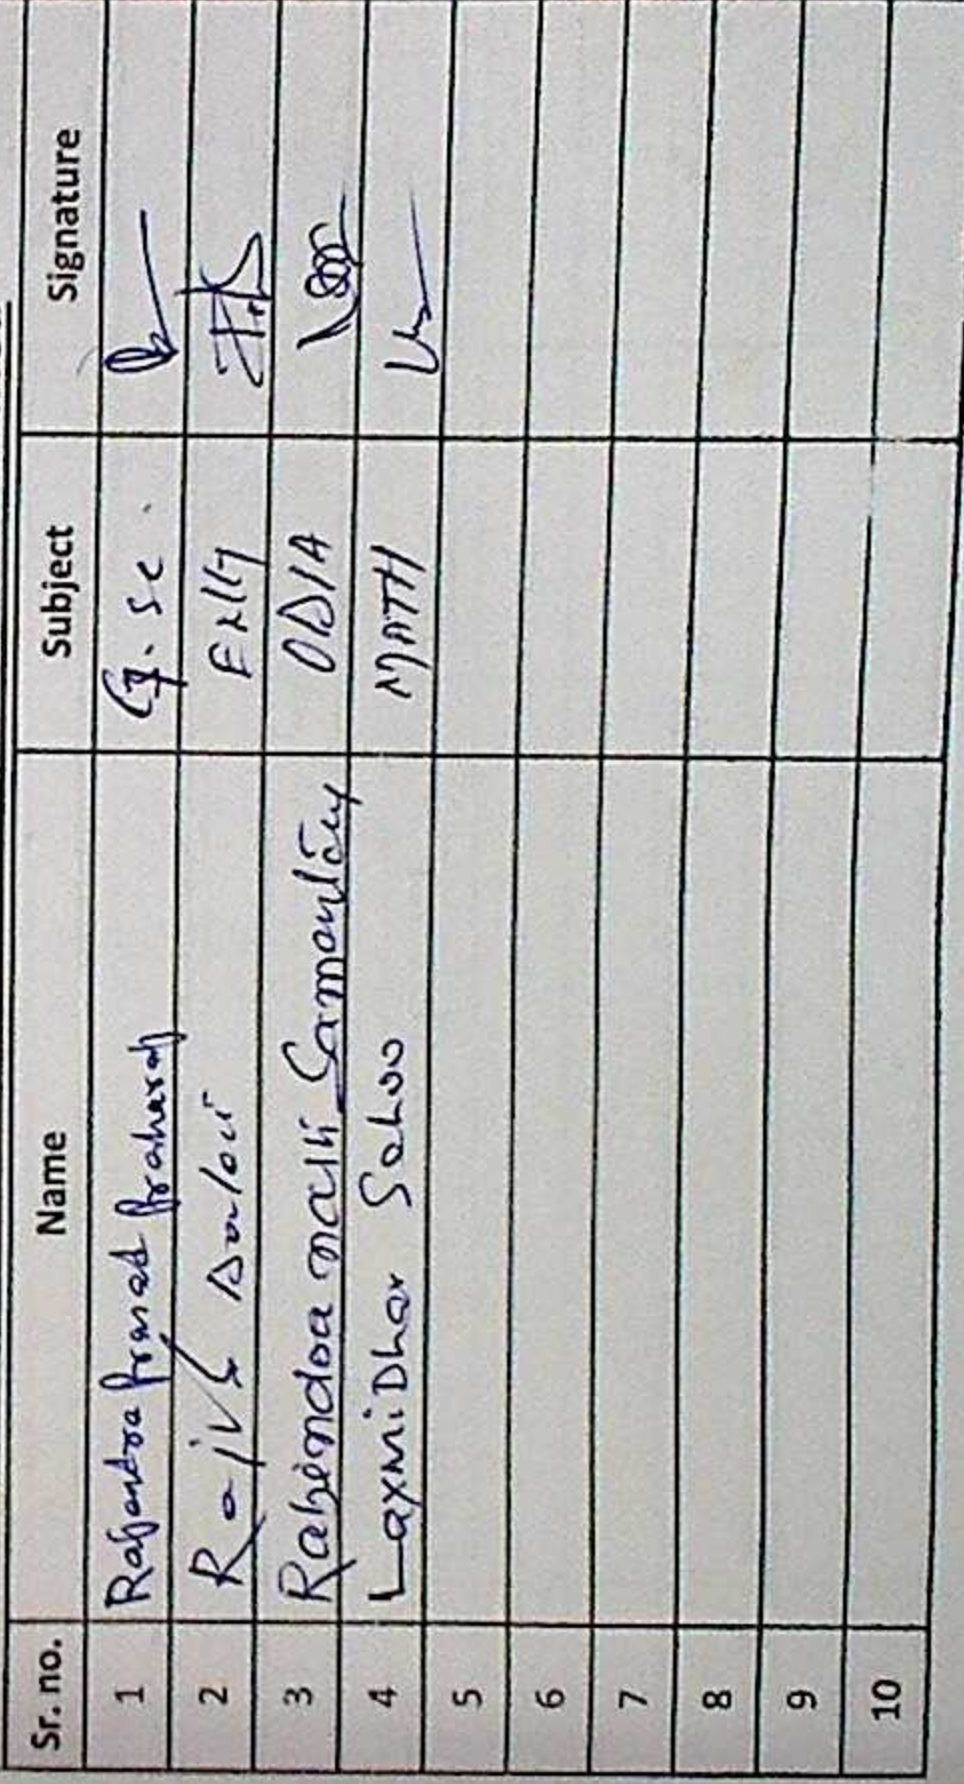 Sr. no. Name Subject Signature
1 Rajendra Prasad Praharaj G. Sc.
2 Rajib
3 Rabindra nath Samantray ODIA
4 LaxmiDhar Sahoo MATH
5
6
7
8
9
10